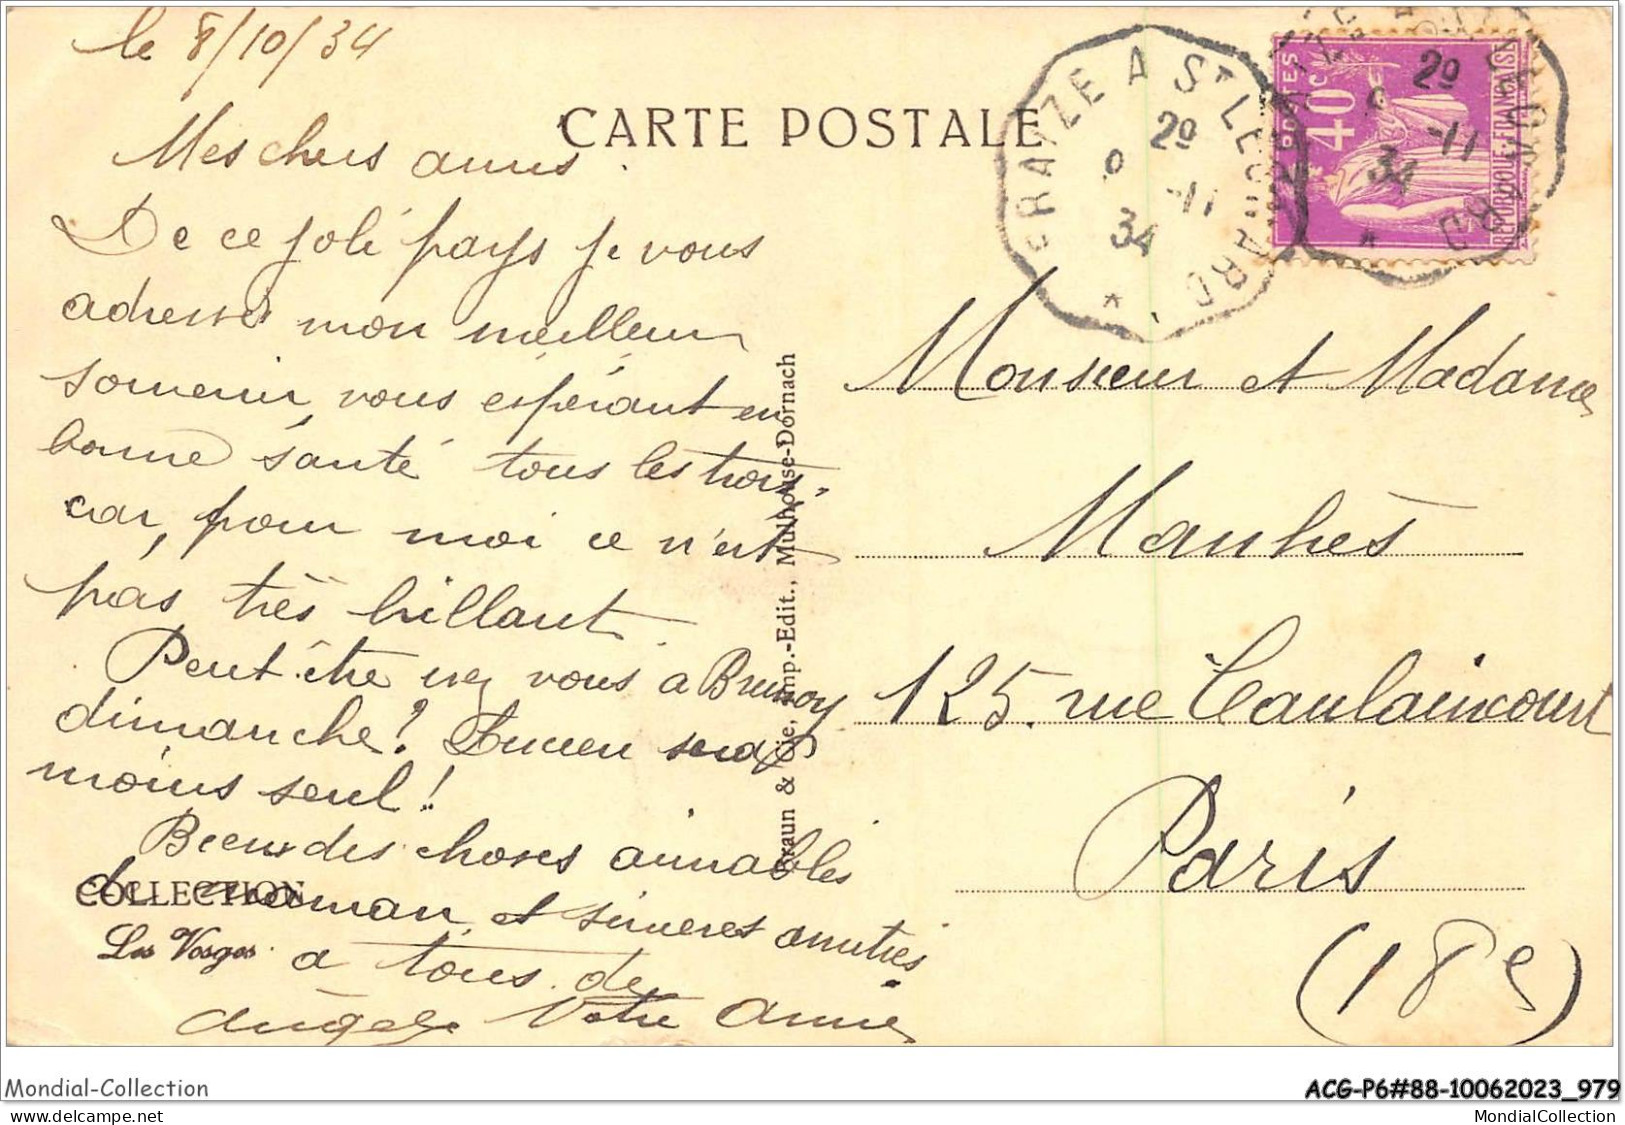 le 8/10/34
CARTE POSTALE
FRAIZE A ST LEONARD
20
-11
34
40c
POSTES
REPUBLIQUE FRANÇAISE
20
-11
34
Mes chers amis.
De ce joli pays je vous
adresse mon meilleur
souvenir, vous espérant en
bonne santé tous les trois,
car, pour moi ce n'est
pas très brillant.
Peut-être irez vous a Brunoy
dimanche? Lucien sera
moins seul!
Bien des choses aimables
de maman, et sincères amitiés
a tous de
Angèle Votre amie
COLLECTION
Les Vosges
Braun & Cie, Imp.-Edit., Mulhouse-Dornach
Monsieur et Madame
Manhès
125. rue Caulaincourt
Paris
(18e)
Mondial-Collection
ACG-P6#88-10062023_979
MondialCollection